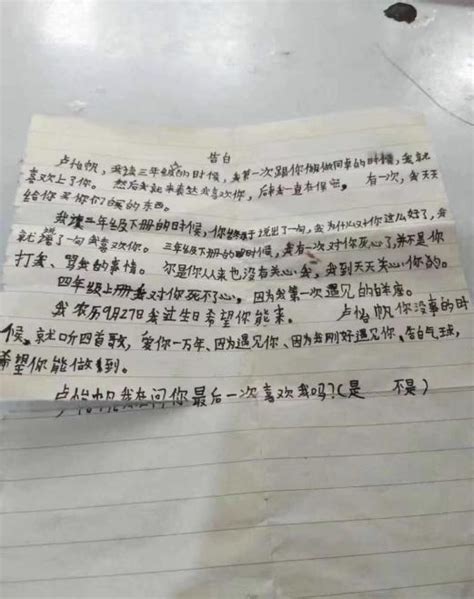 告白
卢怡帆，我读三年级的时候，我第一次跟你做同桌的时候，我就
喜欢上了你。然后我就来表达我喜欢你，后来我一直在保密。有一次，我天天
给你买你们喜的东西。
我读三年级下册的时候，你终于说出了一句，我为什么对你这么好了，我
就说了一句我喜欢你。三年级下册的时候，我有一次对你死心了，并不是你
打我、骂我的事情。你是你从来也没有关心我，我到天天关心你的。
四年级上册我对你死不了心，因为我第一次遇见的味座。
我农历9月27日我过生日希望你能来。卢怡帆你没事的时
候，就听四首歌，爱你一万年、因为遇见你、因为我刚好遇见你、告白气球，
希望你能做到。
卢怡帆我想问你最后一次喜欢我吗？（是 不是）